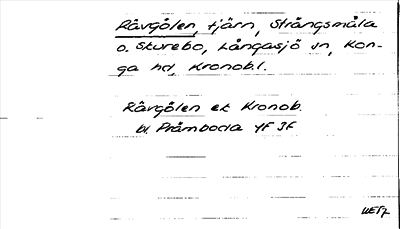 Rävgölen, tjärn, Strångsmåla
o. Skurebo, Långasjö sn, Kon-
ga hd, Kronob.l.
Rävgölen ek Kronob.
bl. Pråmboda 4F 3f